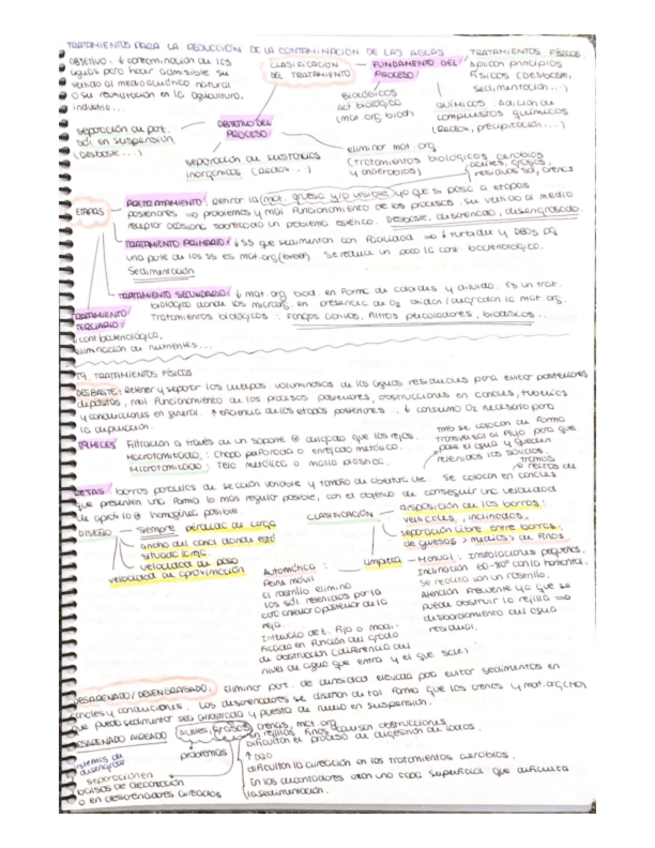 TRATAMIENTOS PARA LA REDUCCIÓN DE LA CONTAMINACIÓN DE LAS AGUAS
OBJETIVO: ↓ contaminación de las
aguas para hacer admisible su
vertido al medio acuático natural
o su reutilización en la agricultura,
industria...
CLASIFICACIÓN
DEL TRATAMIENTO
FUNDAMENTO DEL
PROCESO
TRATAMIENTOS FÍSICOS
Aplican principios
físicos (desbaste,
sedimentación...)
BIOLÓGICOS
Act biológica
(mat org biod)
QUÍMICOS Adición de
compuestos químicos
(Redox, precipitación...)
OBJETIVO DEL
PROCESO
separación de part.
sól en suspensión
(Desbaste...)
separación de sustancias
inorgánicas (Redox...)
eliminar mat. org
(Tratamientos biológicos aerobios
y anaerobios)
aceites, grasas,
residuos sol, arenas
ETAPAS
PRETRATAMIENTO: Retirar la mat. gruesa y/o visible ya que si pasa a etapas
posteriores ⇒ problemas y mal funcionamiento de los procesos. Su vertido al medio
receptor ocasiona sobretodo un problema estético. Desbaste, desarenado, desengrasado.
TRATAMIENTO PRIMARIO: ↓ SS que sedimentan con facilidad ⇒ ↓ turbidez y DBO5 pq
una parte de los SS es mat. org (biod). Se reduce un poco la cont bacteriológica.
Sedimentación
TRATAMIENTO SECUNDARIO: ↓ mat. org biod. en forma de coloides y diluido. Es un trat.
biológico donde los microorg. en presencia de O2 oxidan/degradan la mat. org.
Tratamientos biológicos: Fangos activos, filtros percoladores, biodiscos...
TRATAMIENTO
TERCIARIO:
↓ cont bacteriológica,
eliminación de nutrientes...
T9. TRATAMIENTOS FÍSICOS
DESBASTE: Retener y separar los cuerpos voluminosos de las aguas residuales para evitar posteriores
depósitos, mal funcionamiento de los procesos posteriores, obstrucciones en canales, tuberías
y conducciones en general. ↑ eficiencia de las etapas posteriores. ↓ consumo O2 necesario para
la depuración.
Filtración a través de un soporte delgado que las rejas.
Macrotamizado: Chapa perforada o enrejado metálico.
Microtamizado: Tela metálica o malla plástica.
tmb se colocan de forma
transversal al flujo para que
pase el agua y queden
retenidos los sólidos.
tramos
rectos de
REJAS barras paralelas de sección variable y tamaño de abertura cte. Se colocan en canales
que presenten una forma lo más regular posible, con el objetivo de conseguir una velocidad
de aprox lo homogénea posible.
DISEÑO — Siempre pérdidas de carga
ancho del canal donde esté
situado la reja
velocidad de paso
velocidad de aproximación
CLASIFICACIÓN
disposición de las barras:
verticales, inclinadas.
separación libre entre barras:
de gruesos > medios > de finos
Limpieza — Manual: Instalaciones pequeñas.
Inclinación 60-80° con la horizontal.
Se realiza con un rastrillo.
Atención frecuente ya que se
puede obstruir la rejilla ⇒
desbordamiento del agua
residual.
Automática:
Peine móvil
el rastrillo elimina
los sól retenidos por la
cara anterior o posterior de la
reja.
Intervalo de t. fijo o modi-
ficado en función del grado
de obstrucción (diferencia del
nivel de agua que entra y el que sale)
DESARENADO/DESENGRASADO: Eliminar part. de densidad elevada para evitar sedimentos en
canales y conducciones. Los desarenadores se diseñan de tal forma que las arenas y mat. org
que pueda sedimentar sea arrastrada y puesta de nuevo en suspensión.
DESARENADO AIREADO
aceites, grasas, arenas, mat. org
problemas
en rejillas finas causan obstrucciones
dificultan el proceso de digestión de lodos.
↑ DQO
dificultan la aireación en los tratamientos aerobios.
En los decantadores crean una capa superficial que dificulta
la sedimentación.
sistemas de
desengrase
separación en
balsas de decantación
o en desarenadores aireados